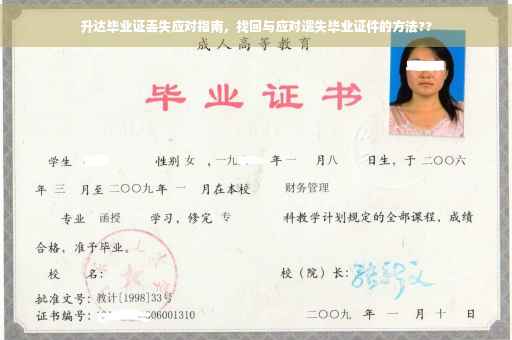 升达毕业证丢失应对指南，找回与应对遗失毕业证件的方法??
成人高等教育
毕业证书
学生 性别 女 ，一九 年 一 月八 日生，于二〇〇六
年 三 月至二〇〇九年 一 月在本校 财务管理
专业 函授 学习，修完 专 科教学计划规定的全部课程，成绩
合格，准予毕业。
校 名： 校（院）长：
批准文号：教计[1998]33号
证书编号： 06001310 二〇〇九 年 一 月 十 日